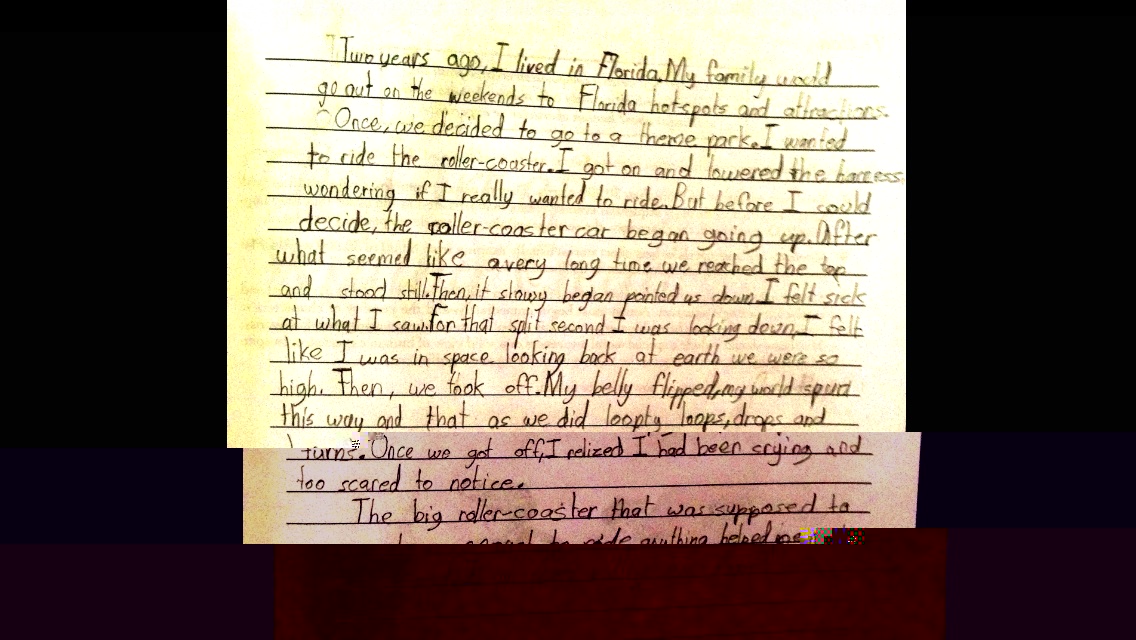 Two years ago, I lived in Florida. My family would
go out on the weekends to Florida hotspots and attractions.
Once, we decided to go to a theme park. I wanted
to ride the roller-coaster. I got on and lowered the harness
wondering if I really wanted to ride. But before I could
decide, the roller-coaster car began going up. After
what seemed like a very long time we reached the top
and stood still. Then, it slowy began pointed us down. I felt sick
at what I saw. For that split second I was looking down, I felt
like I was in space looking back at earth we were so
high. Then, we took off. My belly flipped, my world spun
this way and that as we did loopty loops, drops and
turns. Once we got off, I relized I had been crying and
too scared to notice.
The big roller-coaster that was supposed to
to ride anything helped me